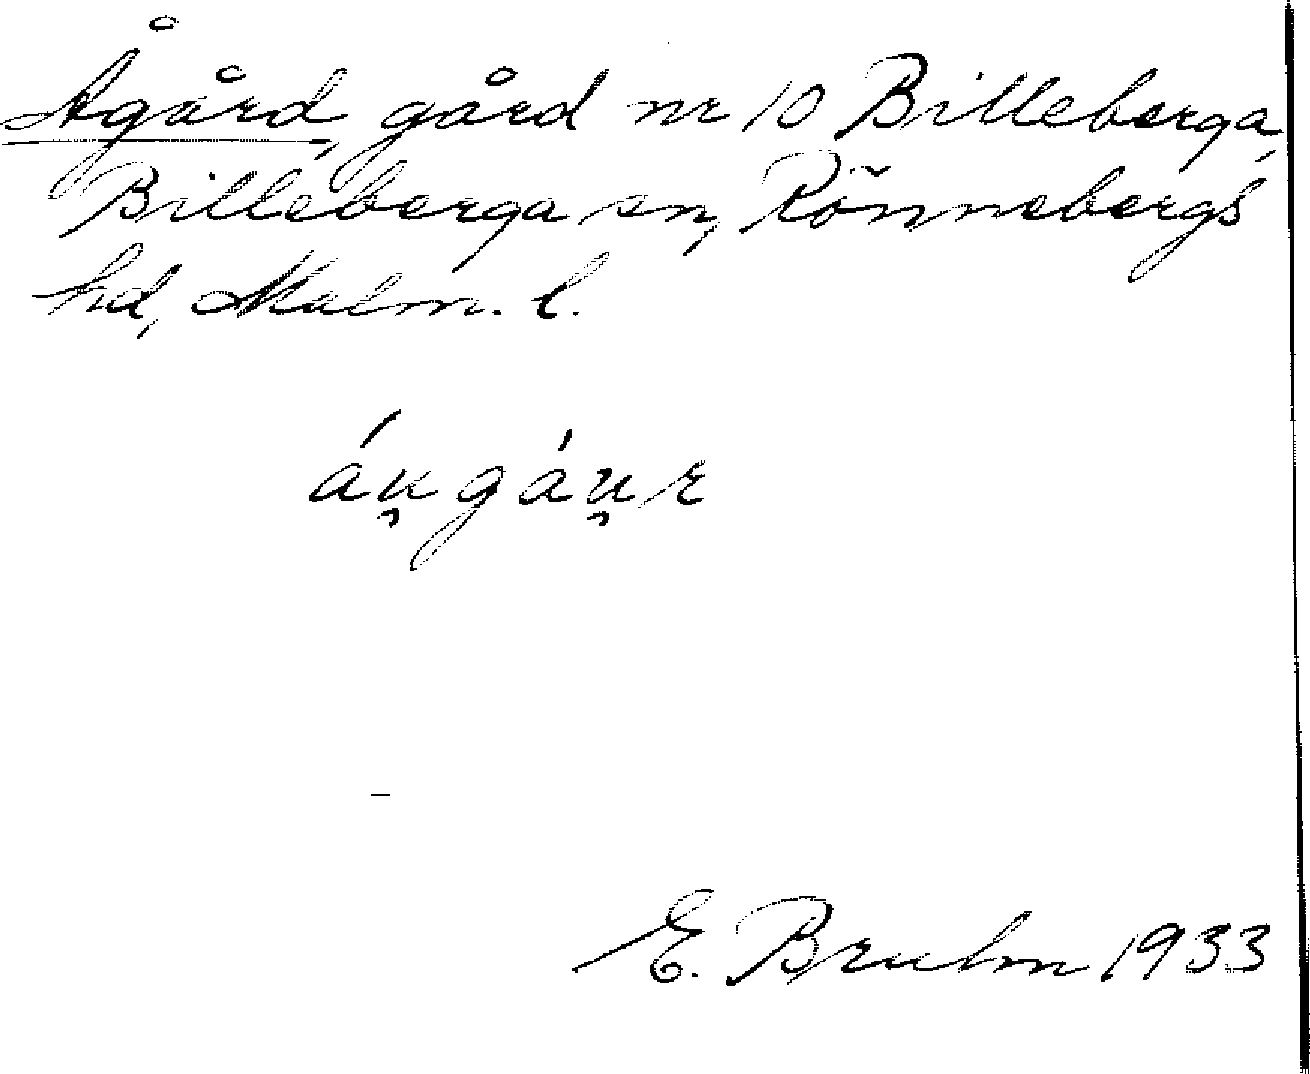 Ågård, gård nr 10 Billeberga,
Billeberga sn, Rönnebergs
hd, Malm. l.
áu̯gáu̯r
E. Bruhn 1933